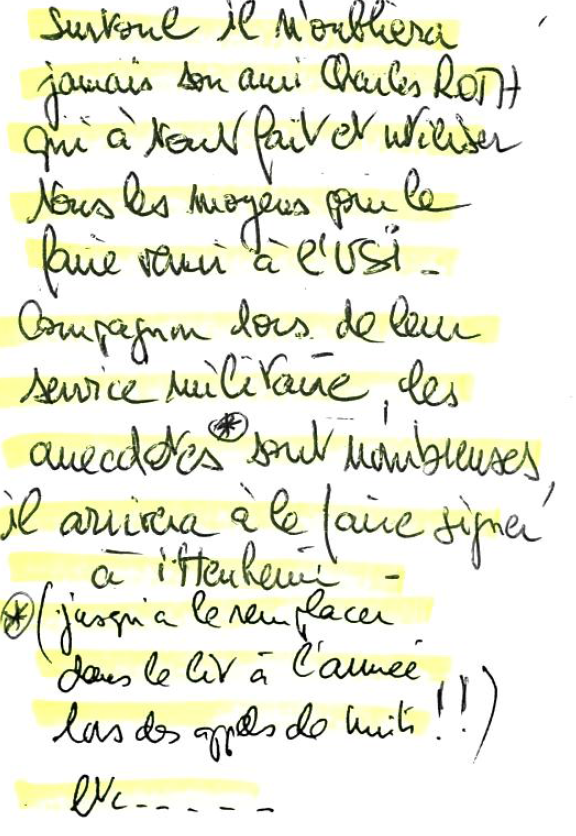 Surtout il n'oubliera
jamais son ami Charles ROTH
qui à tout fait et utiliser
tous les moyens pour le
faire venir à l'USI -
Compagnon lors de leur
service militaire, les
anecdotes * sont nombreuses,
il arrivera à le faire signer
à ittenheim -
* (jusqu'a le remplacer
dans le lit à l'armée
lors des appels de nuits !!!)
etc-----